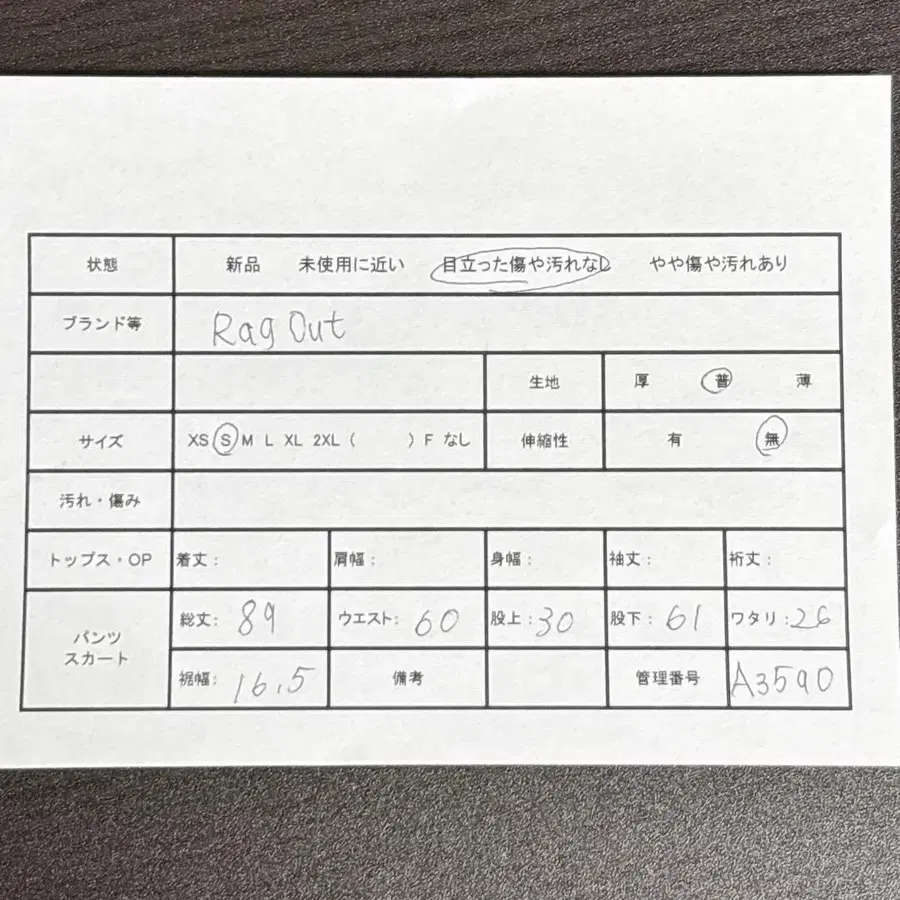 状態 新品 未使用に近い 目立った傷や汚れなし やや傷や汚れあり
ブランド等 Rag Out
生地 厚 普 薄
サイズ XS S M L XL 2XL ( ) F なし 伸縮性 有 無
汚れ・傷み
トップス・OP 着丈: 肩幅: 身幅: 袖丈: 裄丈:
パンツ
スカート
総丈: 89 ウエスト: 60 股上: 30 股下: 61 ワタリ: 26
裾幅: 16.5 備考 管理番号 A3590